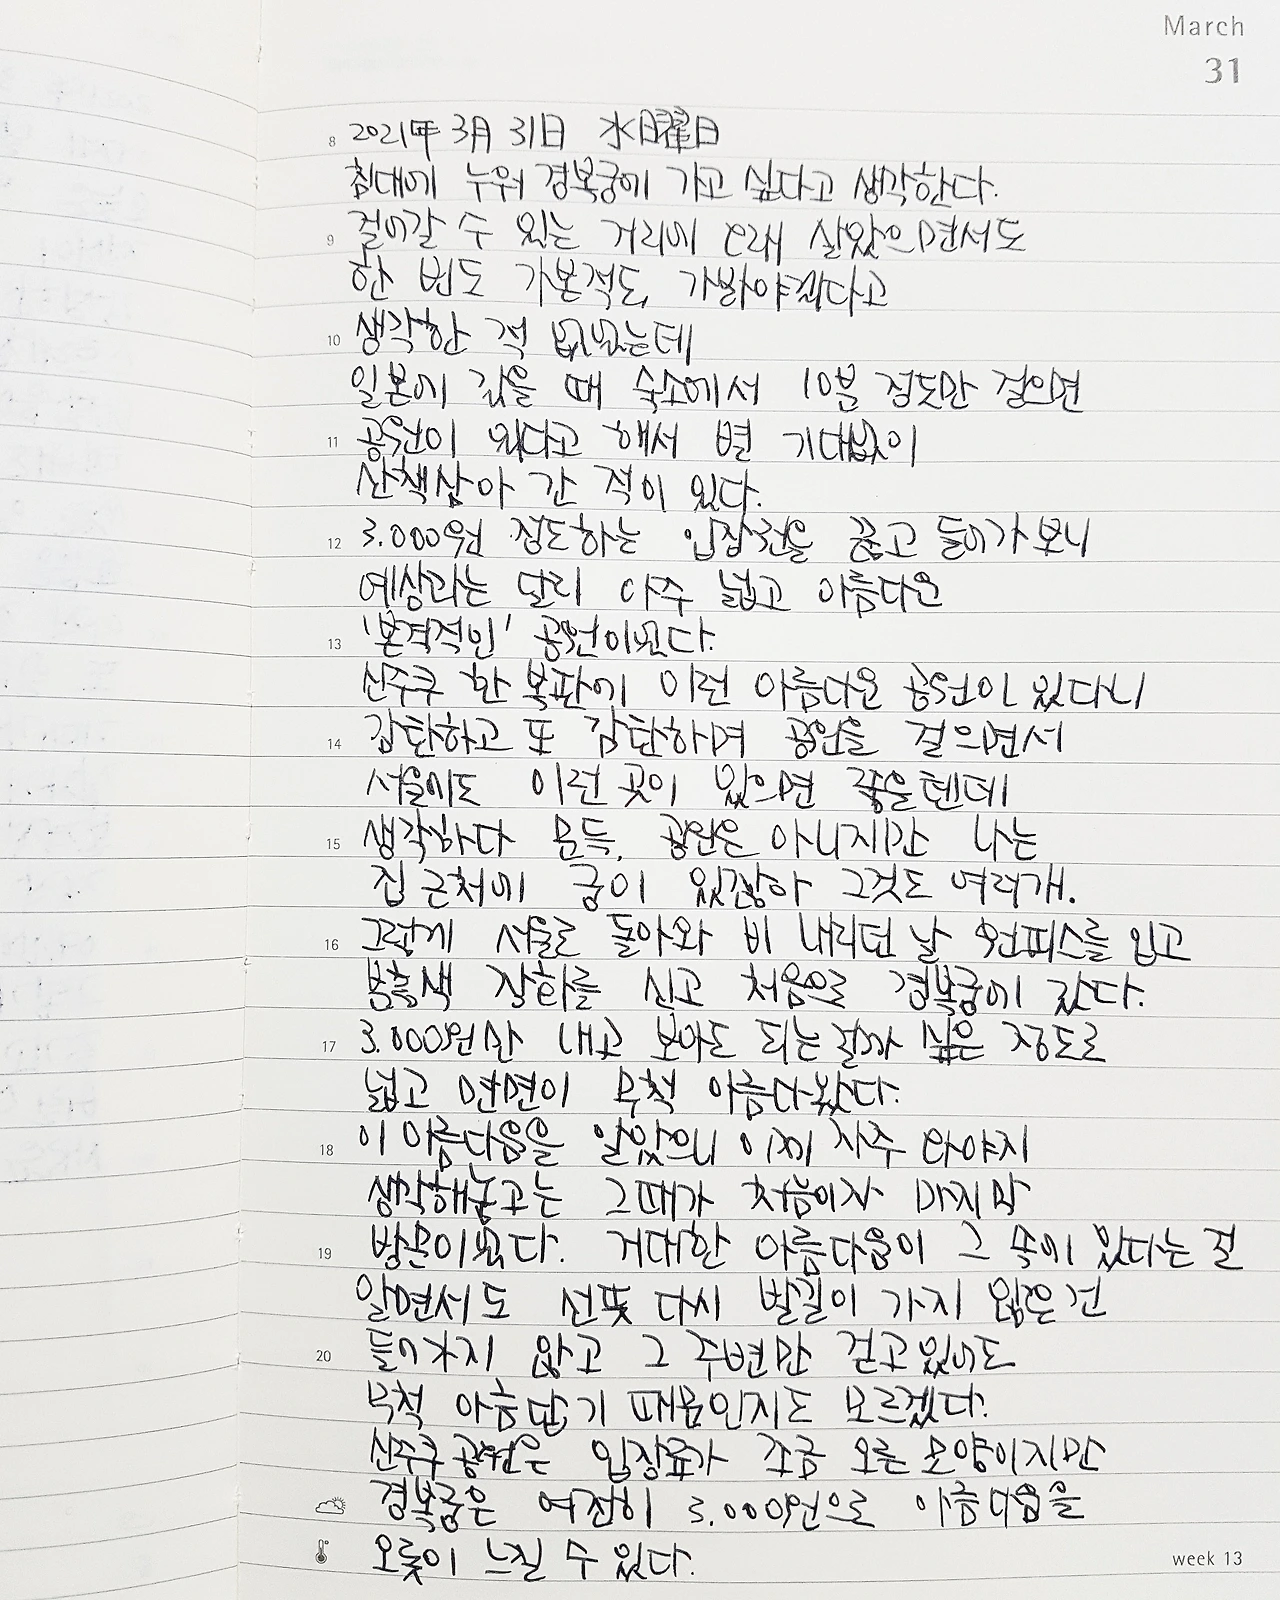 March
31
8 2021年 3月 31日 水曜日
침대에 누워 경복궁에 가고 싶다고 생각한다.
9 걸어갈 수 있는 거리에 오래 살았으면서도
한 번도 가본적도, 가봐야겠다고
10 생각한 적 없었는데
일본에 갔을 때 숙소에서 10분 정도만 걸으면
11 공원이 있다고 해서 별 기대없이
산책삼아 간 적이 있다.
12 3.000원 정도하는 입장권을 끊고 들어가보니
예상과는 달리 아주 넓고 아름다운
13 '본격적인' 공원이었다.
신주쿠 한 복판에 이런 아름다운 공원이 있다니
14 감탄하고 또 감탄하며 공원을 걸으면서
서울에도 이런 곳이 있으면 좋을텐데
15 생각하다 문득, 공원은 아니지만 나는
집 근처에 궁이 있잖아 그것도 여러개.
16 그렇게 서울로 돌아와 비 내리던 날 원피스를 입고
장화를 신고 처음으로 경복궁에 갔다.
17 3.000원만 내고 보아도 되는걸까 싶은 정도로
넓고 면면이 무척 아름다웠다.
18 이 아름다움을 알았으니 이제 자주 와야지
생각해놓고는 그때가 처음이자 마지막
19 방문이었다. 거대한 아름다움이 그 속에 있다는 걸
알면서도 선뜻 다시 발길이 가지 않은건
20 들어가지 않고 그 주변만 걷고있어도
무척 아름답기 때문인지도 모르겠다.
신주쿠공원은 입장료가 조금 오른 모양이지만
경복궁은 여전히 3.000원으로 아름다움을
오롯이 느낄 수 있다.
week 13